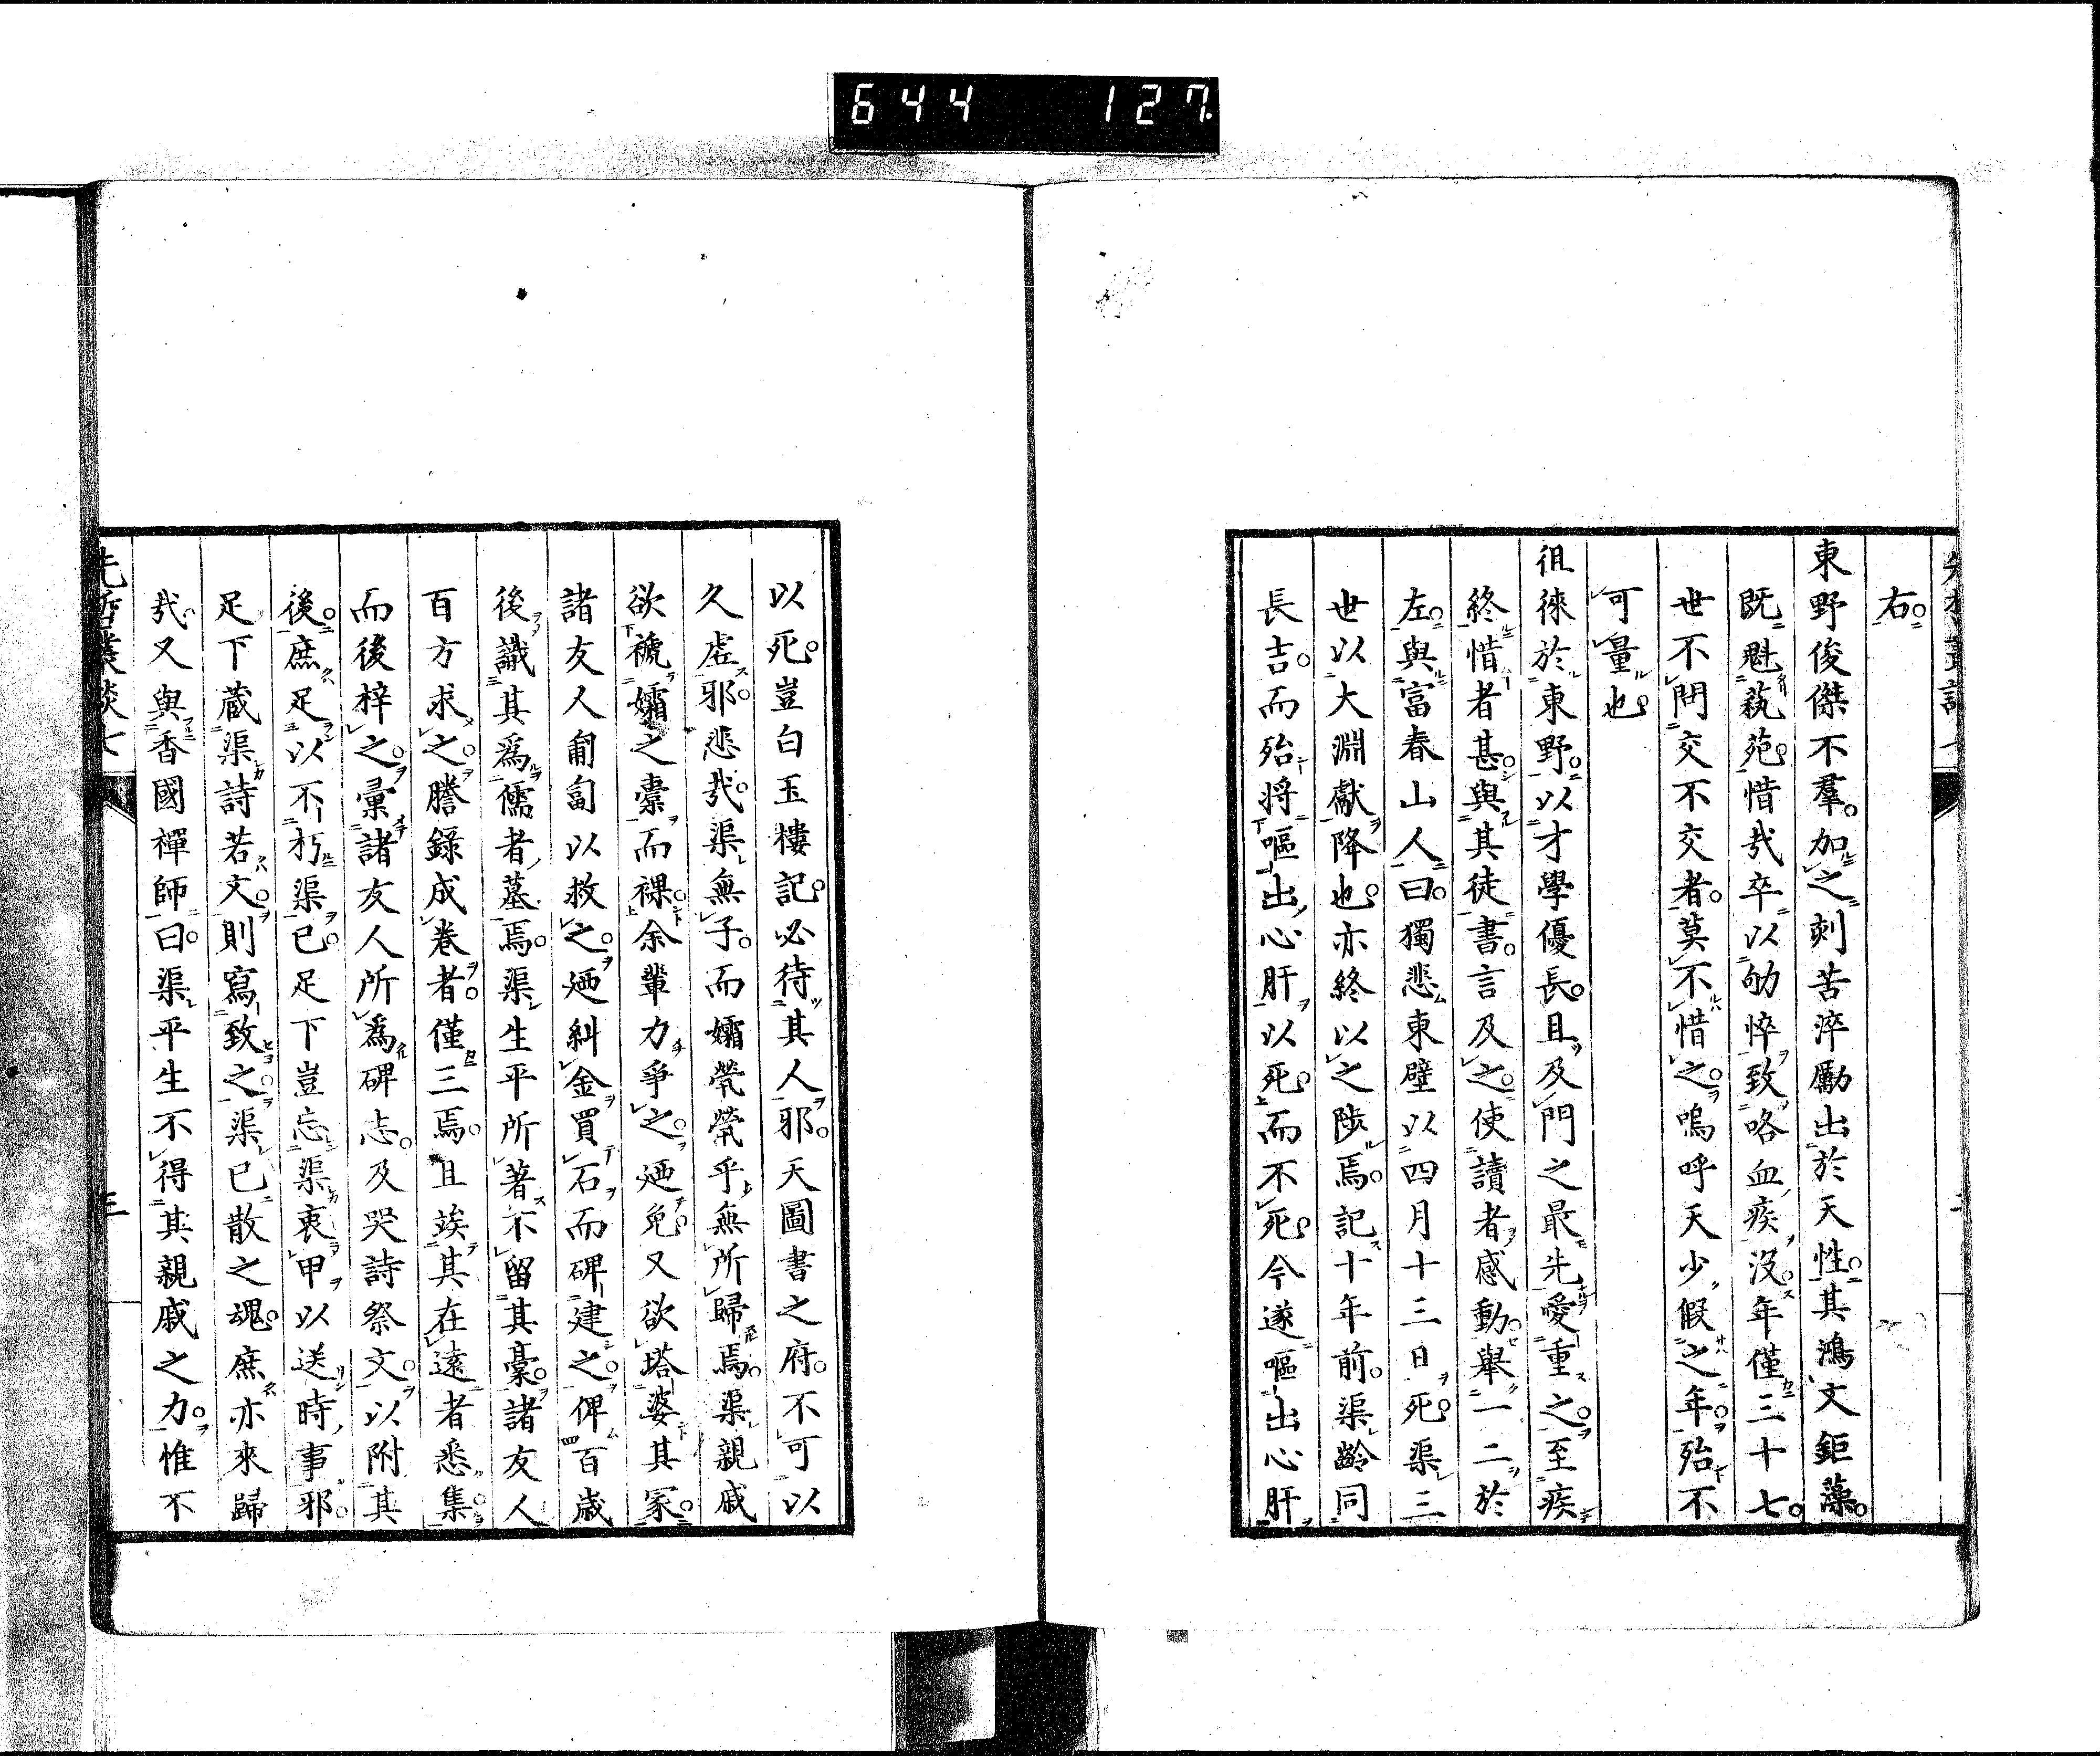 644 127
右
東野俊傑不羣加之刻苦淬勵出於天性其鴻文鉅藻
既魁蓺苑惜哉卒以劬悴致咯血疾沒年僅三十七
世不問交不交者莫不惜之嗚呼天少假之年殆不
可量也
徂徠於東野以才學優長且及門之最先愛重之至疾
終惜者甚與其徒書言及之使讀者感動舉一二於
左與富春山人曰獨悲東壁以四月十三日死渠三
世以大淵獻降也亦終以之陟焉記十年前渠齡同
長吉而殆將嘔出心肝以死而不死今遂嘔出心肝
以死豈白玉樓記必待其人邪天圖書之府不可以
久虛邪悲哉渠無子而孀煢煢乎無所歸焉渠親戚
欲褫孀之橐而裸余輩力爭之迺免又欲塔婆其冢
諸友人匍匐以救之迺糾金買石而碑建之俾百歲
後識其爲儒者墓焉渠生平所著不留其稾諸友人
百方求之謄錄成卷者僅三焉且竢其在遠者悉集
而後梓之彙諸友人所爲碑志及哭詩祭文以附其
後庶足以不朽渠已足下豈忘渠衷甲以送時事邪
足下藏渠詩若文則寫致之渠已散之魂庶亦來歸
哉又與香國禪師曰渠平生不得其親戚之力惟不
先哲叢談七
三